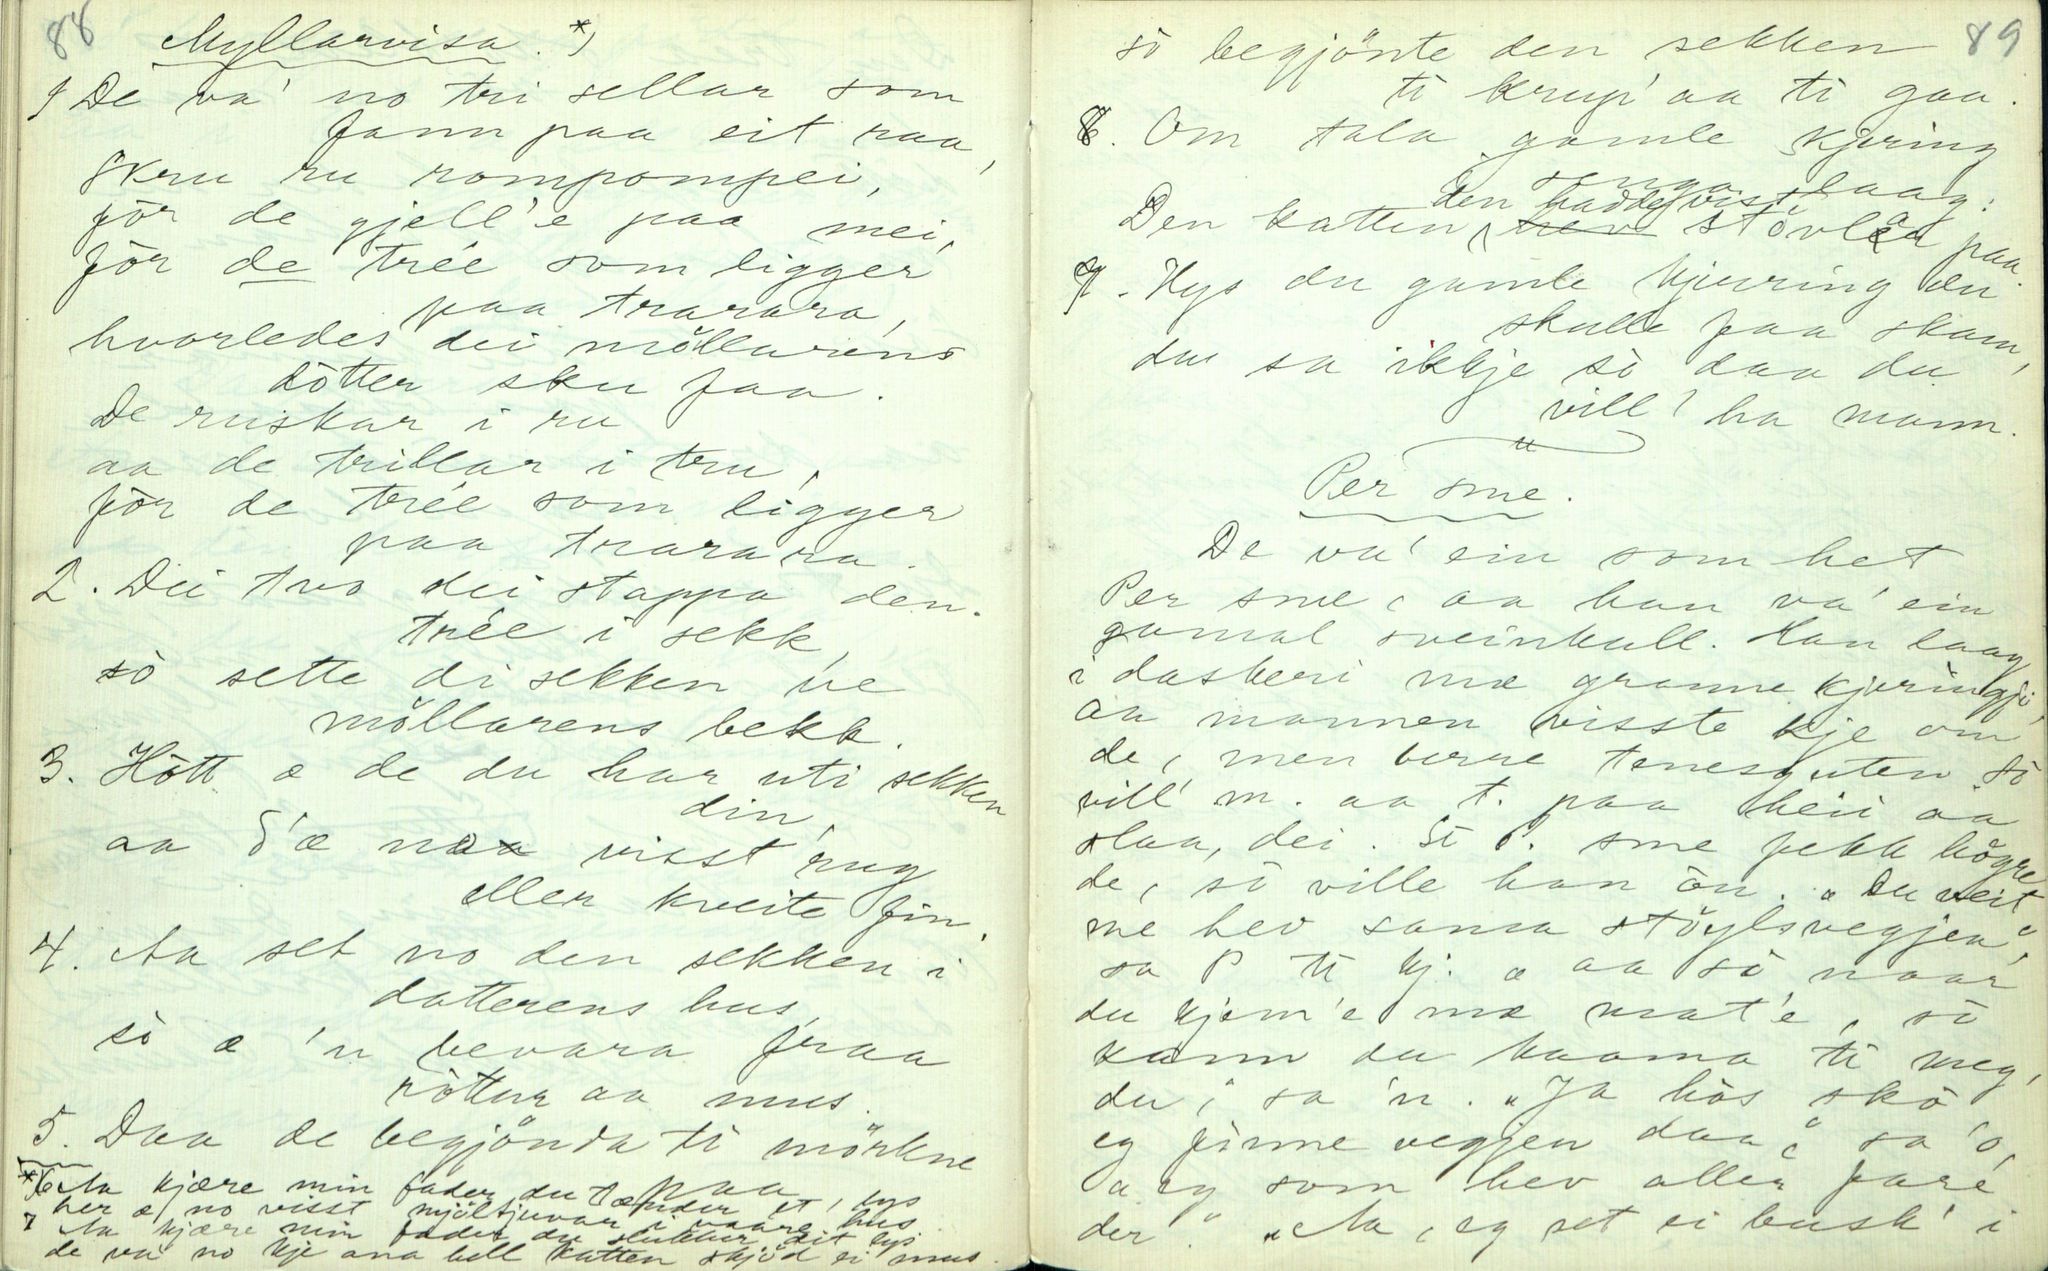 88
Myllarvisa. *)
1 De va' no tri sellar som
fann paa eit raa,
Skru ru rompompei,
för de gjell'e paa mei,
för de trée som ligger
paa trarara,
hvorledes dei möllarens
dötter sku faa.
De ruskar i ru
aa de trillar i tru,
för de trée som ligger
paa trarara.
2. Dei tvo dei stappa den
trée i sekk,
sò sette di sekken ve
möllarens bekk.
3. Hòtt æ de du har uti sekken
din,
aa d'æ noa visst rug
eller kveite fin.
4. Aa set no den sekken i
datterens hus,
sò æ 'n bevara fraa
ròttur aa mus.
5. Daa de begjönda ti mörkne
paa
*) 6 Aa kjære min fader du tænder et lys
her æ no visst mjöltjuvar i vaare hus.
7 Aa kjære min fader du slukker dit lys
de va no kje ana hell katten skjöd ei mus.
89
sò begjönte den sekken
ti krup' aa ti gaa.
8. Om tala gamle kjering
i senga laag:
den hadde visst
Den katten hev stövlar paa.
9. Hys du gamle kjerring du
skulle faa skam,
du sa ikkje sò daa du
vill' ha mann.
Per sme.
De va' ein som het
Per sme, aa han va' ein
gamal sveinkall. Han laag
i daskeri mæ granne kjeringji,
aa mannen visste kje om
de, men berre tenesguten. Sò
vill' m. aa t. paa heii aa
slaa, dei. Sò P. sme fekk högre
de, sò ville han òu. „Du veit
me hev sama stöylsvegjen“,
sa P ti kj. „ aa sò naar
du kjem'e mæ mat'e, sò
kann du kaama ti meg,
du“, sa 'n. „Ja hòs skò
eg finne vegjen daa“, sa 'o,
„eg som hev aller fare
der“. „Aa, eg set ei busk' i